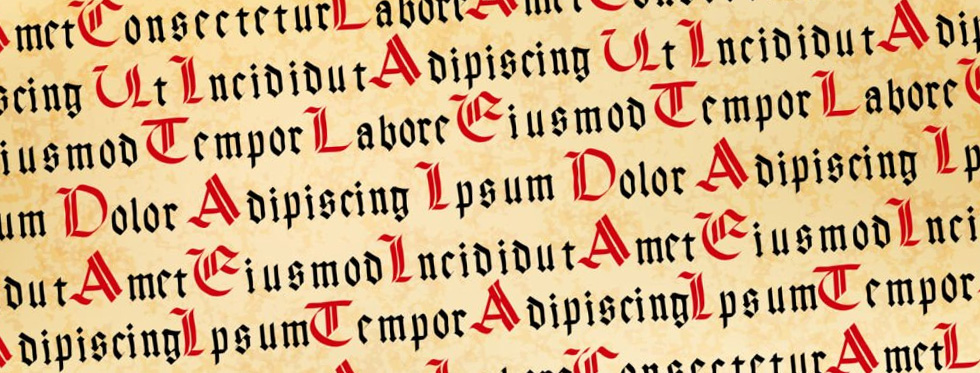 Amet Consectetur Labore Amet
scing Ut Incididut Adipiscing Ut Incididut Adip
iusmod Tempor Labore Eiusmod Tempor Labore
um Dolor Adipiscing Ipsum Dolor Adipiscing Ip
dut Amet Eiusmod Incididut Amet Eiusmod Inci
Adipiscing Ipsum Tempor Adipiscing Ipsum Tempor
Consectetur Amet L